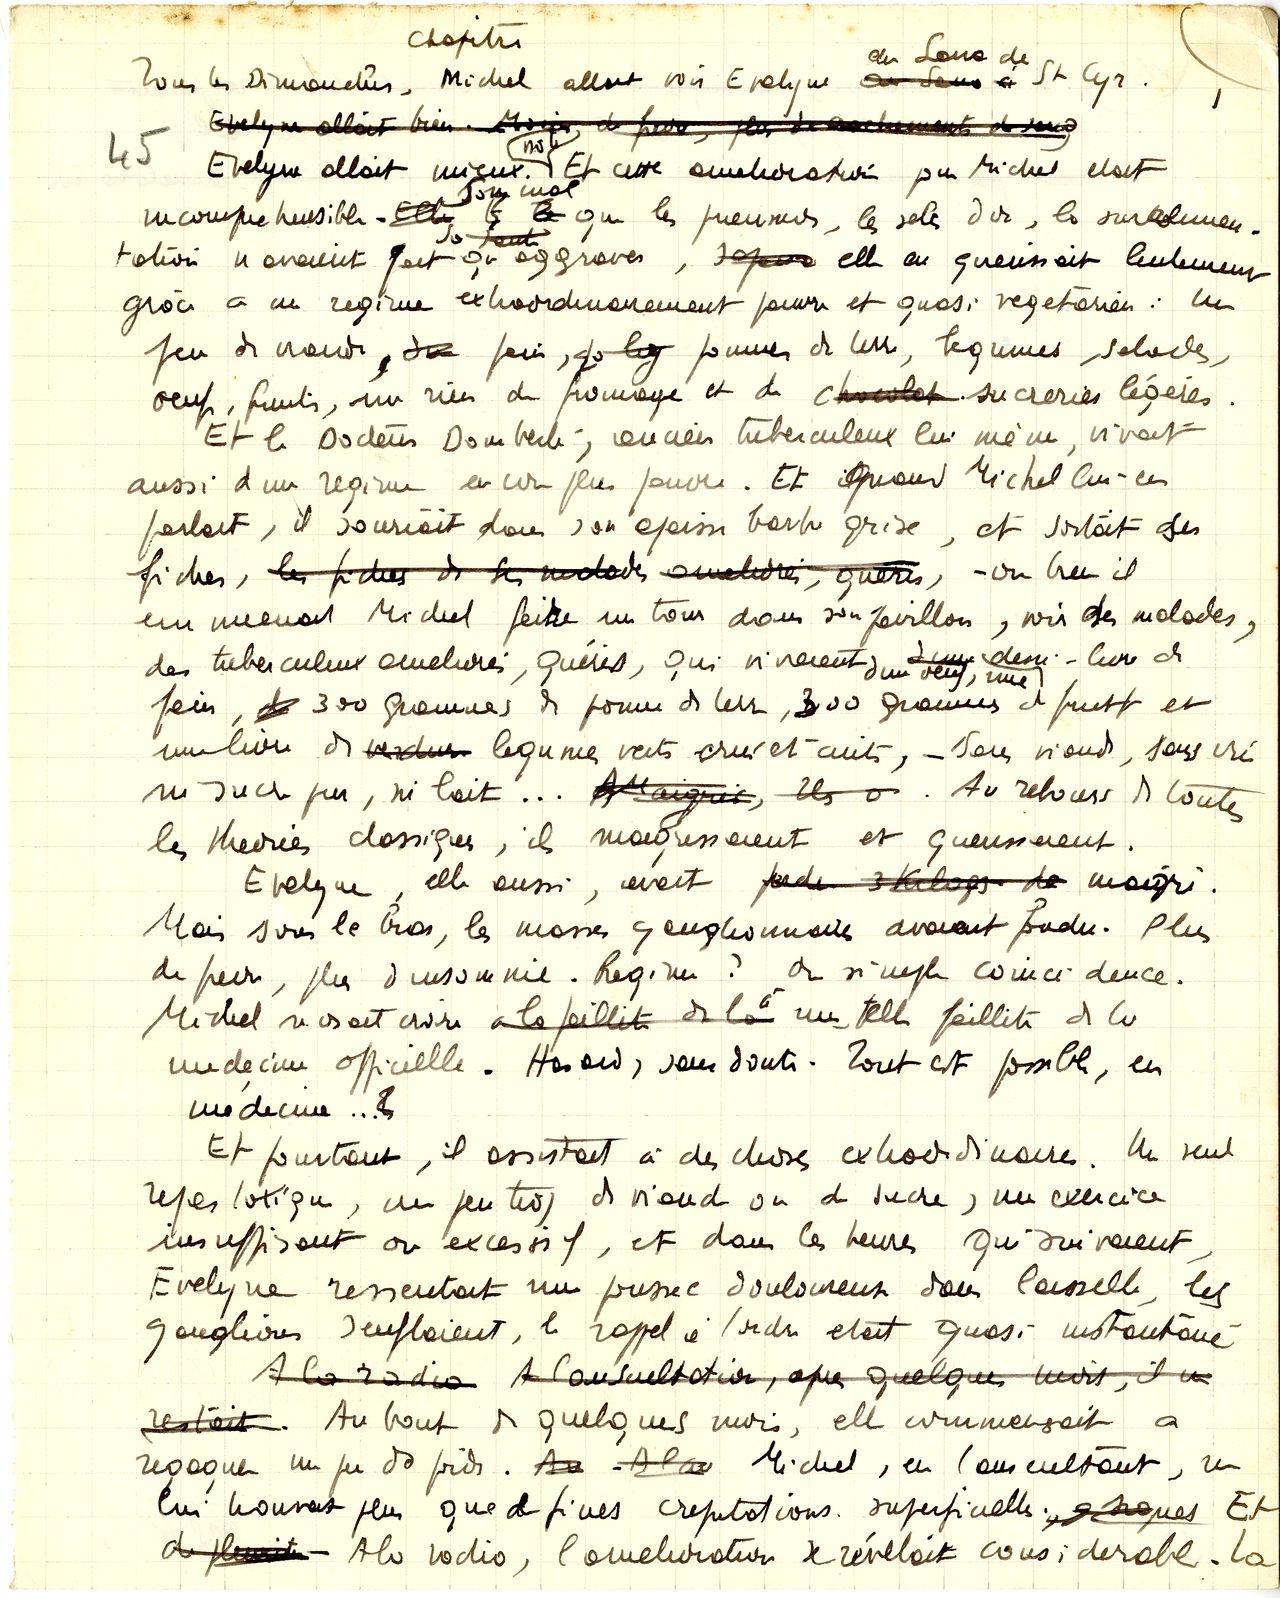 Chapitre
1
Tous les Dimanches, Michel allait voir Evelyne au Sana de St Cyr.
au Sana à
45
Evelyne allait bien. Moins de peur, plus de crachements de sang
Evelyne allait mieux. Et cette amélioration pour Michel était
incompréhensible. Elle Son mal que les pneumos, les sels d'or, la suralimen-
tation n'avaient fait qu'aggraver, elle en guérissait seulement
grâce à un régime extraordinairement pauvre et quasi végétarien : un
peu de viande, du pain, pommes de terre, légumes, salades,
oeufs, fruits, un rien de fromage et de chocolat sucreries légères.
Et le Docteur Domberlé, ancien tuberculeux lui même, vivait
aussi d'un régime encor plus pauvre. Et quand Michel lui en
parlait, il souriait dans son épaisse barbe grise, et sortait des
fiches, les fiches de ses malades améliorés, guéris, - ou bien il
emmenait Michel faire un tour dans son pavillon, voir des malades,
des tuberculeux améliorés, guéris, qui vivaient d'une demi-livre de
d'un oeuf,
pain, 300 grammes de pomme de terre, 300 grammes de fruits et
une livre de legumes verts crus et cuits, - Sans viande, sans vin
ni sucre pur, ni lait ... Amaigris, Ils. Au rebours de toutes
les théories classiques, ils maigrissaient et guérissaient.
Evelyne, elle aussi, avait perdu 3 kilogs de maigri.
Mais sous le bras, les masses ganglionnaires avaient fondu. Plus
de peur, plus d'insomnie. Régime ? Ou simple coincidence.
Michel n'osait croire à la faillite de la à une telle faillite de la
medecine officielle. Hasard, sans doute. Tout est possible, en
médecine ...
Et pourtant, il assistait à des choses extraordinaires. Un seul
repas toxique, un peu trop de viande ou de sucre, un exercice
insuffisant ou excessif, et dans les heures qui suivaient,
Evelyne ressentait une poussée douloureuse dans l'aisselle, les
ganglions s'enflaient, le rappel à l'ordre était quasi instantané
A la radio A l'auscultation, après quelques mois, il ne
restait. Au bout de quelques mois, elle commençait à
regagner un peu de poids. Au A la Michel, en l'auscultant, ne
lui trouvait plus que de fines crépitations superficielles. Et
de pleurite A la radio, l'amélioration se révélait considérable. La